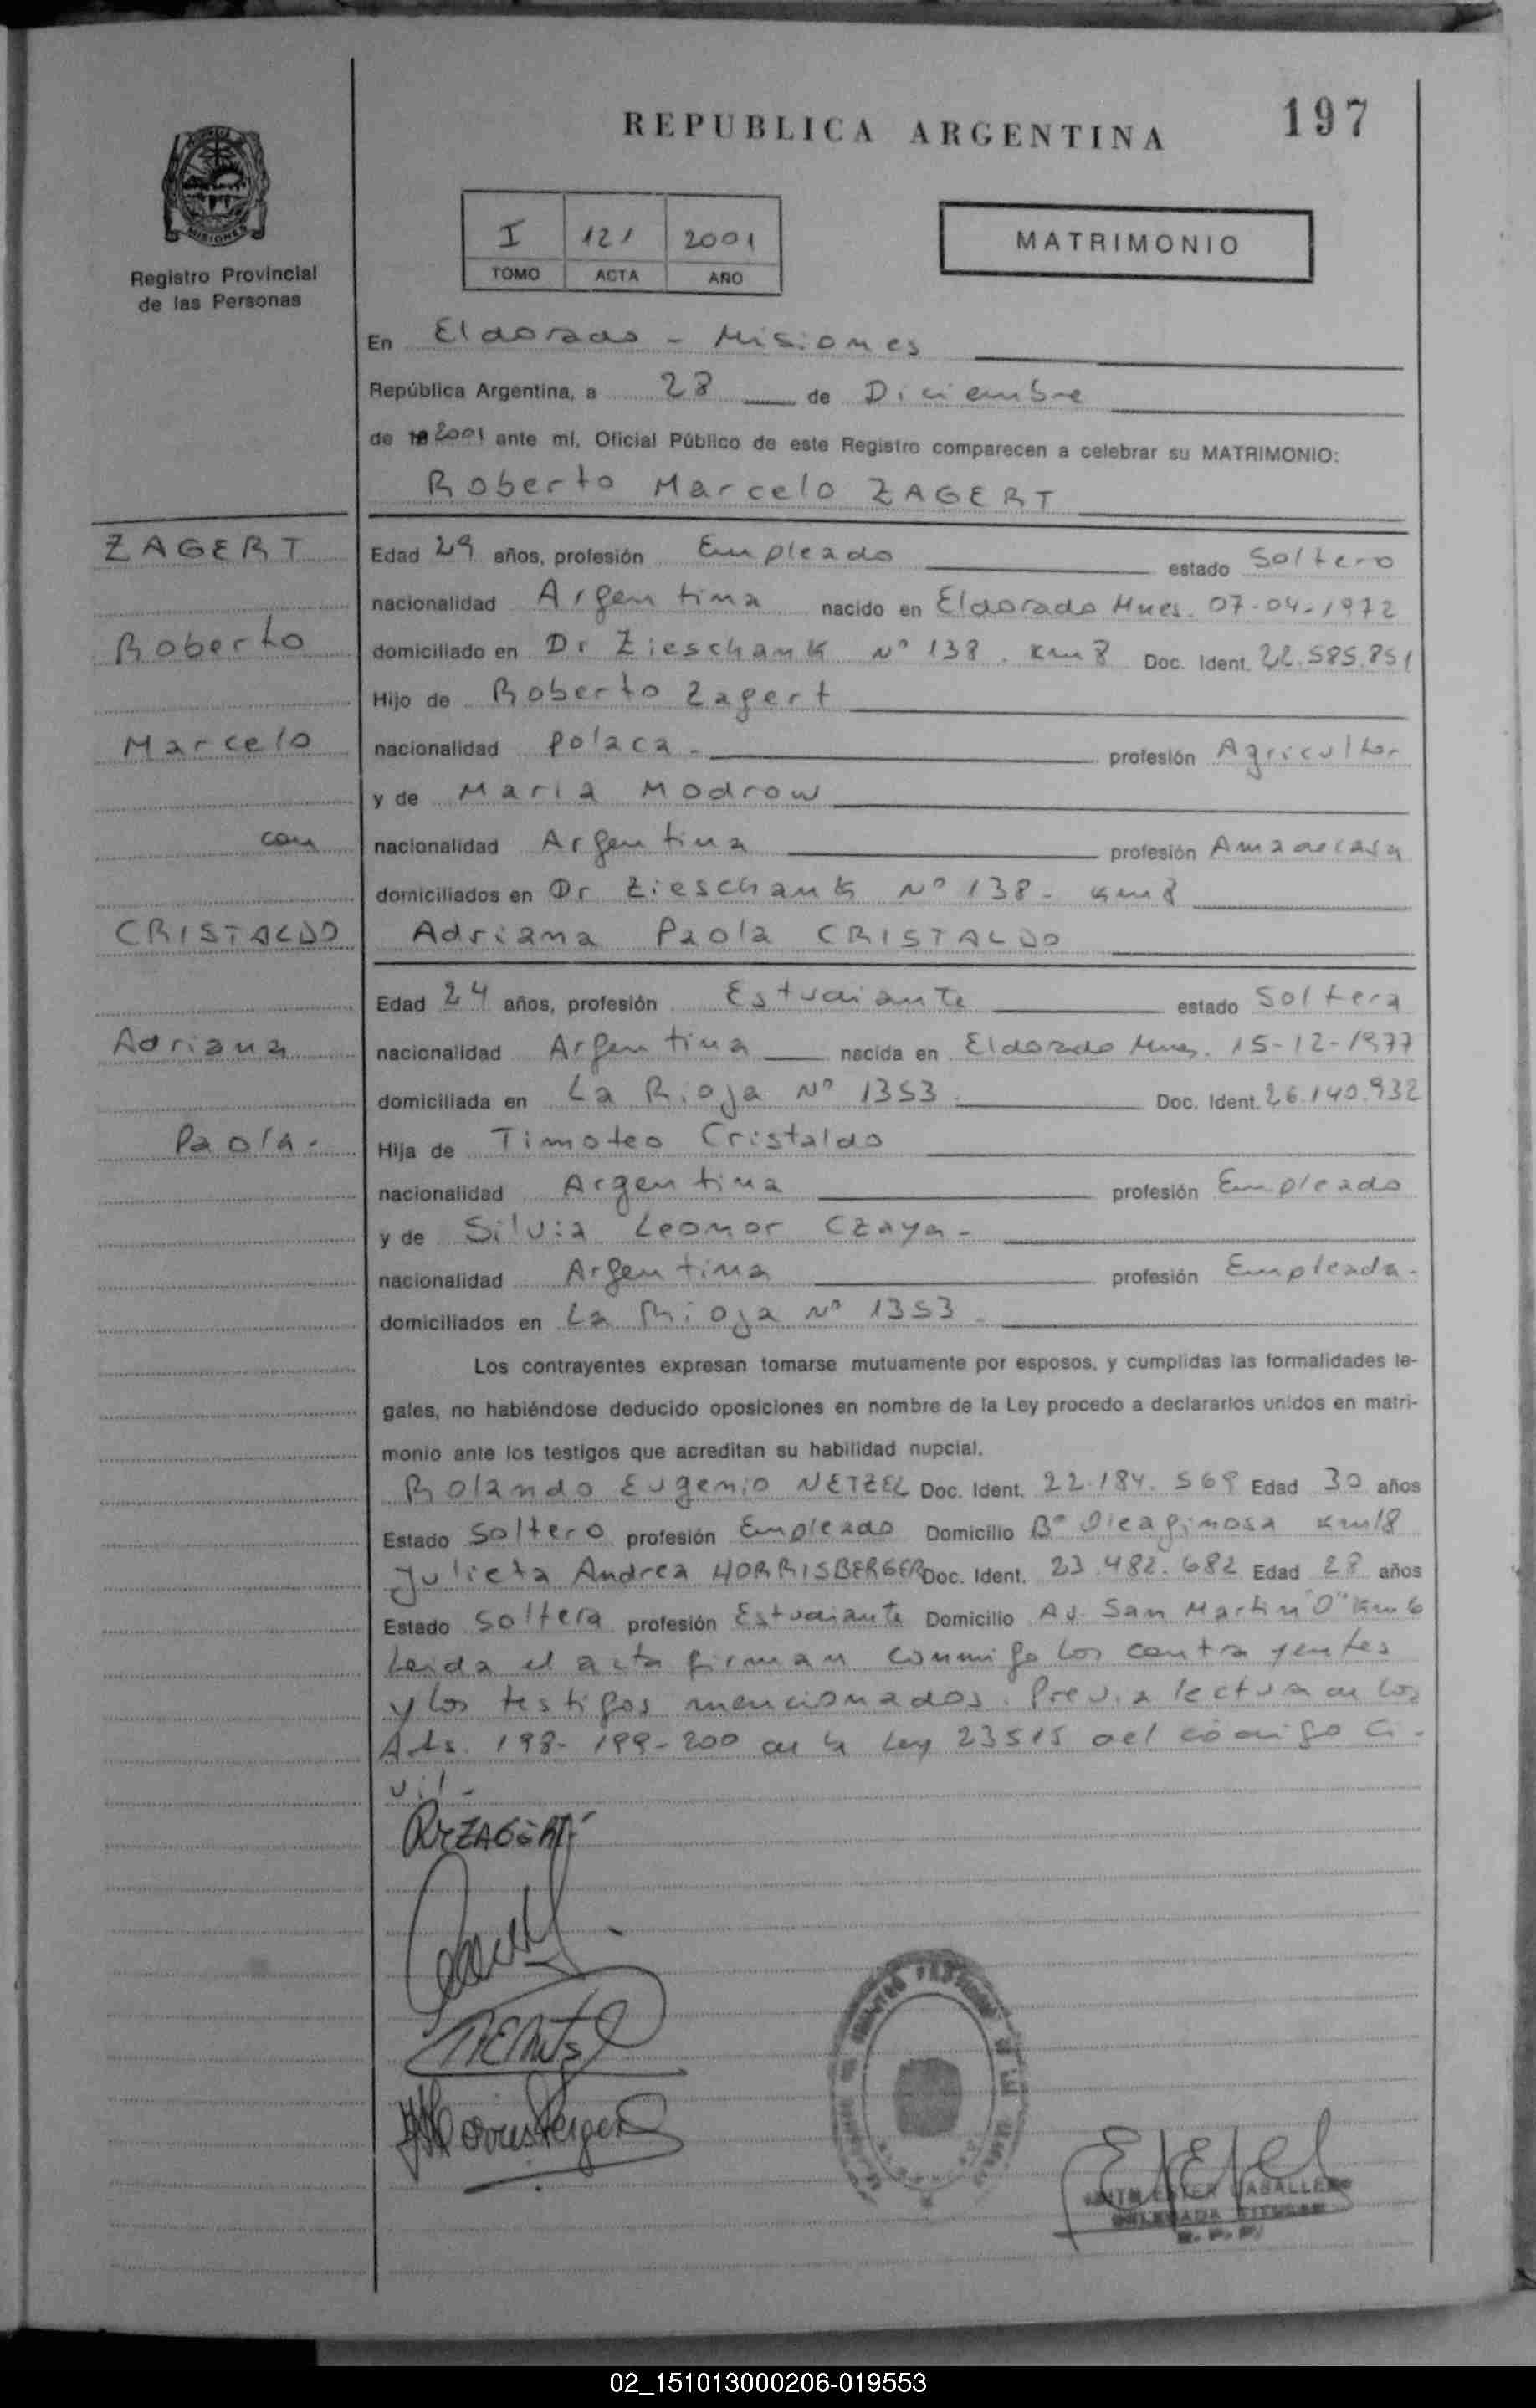 REPUBLICA ARGENTINA
197
MISIONES
Registro Provincial
de las Personas
I 121 2001
TOMO ACTA AÑO
MATRIMONIO
En Eldorado - Misiones
República Argentina, a 28 de Diciembre
de 2001 ante mí, Oficial Público de este Registro comparecen a celebrar su MATRIMONIO:
Roberto Marcelo ZAGERT
ZAGERT
Roberto
Marcelo
con
CRISTALDO
Adriana
Paola.
Edad 29 años, profesión Empleado estado Soltero
nacionalidad Argentina nacido en Eldorado Mnes. 07-04-1972
domiciliado en Dr Zieschank Nº 138. Km 8 Doc. Ident. 22.585.851
Hijo de Roberto Zagert
nacionalidad Polaca. profesión Agricultor
y de Maria Modrow
nacionalidad Argentina profesión Ama de casa
domiciliados en Dr Zieschank Nº 138 - Km 8
Adriana Paola CRISTALDO
Edad 24 años, profesión Estudiante estado Soltera
nacionalidad Argentina nacida en Eldorado Mnes. 15-12-1977
domiciliada en La Rioja Nº 1353. Doc. Ident. 26.140.932
Hija de Timoteo Cristaldo
nacionalidad Argentina profesión Empleado
y de Silvia Leonor Czaya -
nacionalidad Argentina profesión Empleada -
domiciliados en La Rioja Nº 1353.
Los contrayentes expresan tomarse mutuamente por esposos, y cumplidas las formalidades le-
gales, no habiéndose deducido oposiciones en nombre de la Ley procedo a declararlos unidos en matri-
monio ante los testigos que acreditan su habilidad nupcial.
Rolando Eugenio NETZEL Doc. Ident. 22.184.569 Edad 30 años
Estado Soltero profesión Empleado Domicilio Bº Oleaginosa Km 18
Julieta Andrea HORRISBERGER Doc. Ident. 23.482.682 Edad 28 años
Estado Soltera profesión Estudiante Domicilio Av. San Martin "O" Km 6
Leida el acta firman conmigo los contrayentes
y los testigos mencionados. Previa lectura de los
Arts. 198-199-200 de la Ley 23515 del código Ci-
vil -
ZAGERT
Horrisberger
ESTER CABALLERO
DELEGADA TITULAR
R. P. P.
02_151013000206-019553